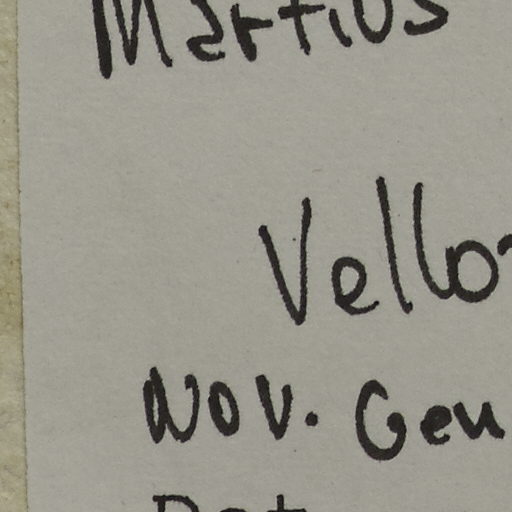 Martius
Vello
Nov. Gen